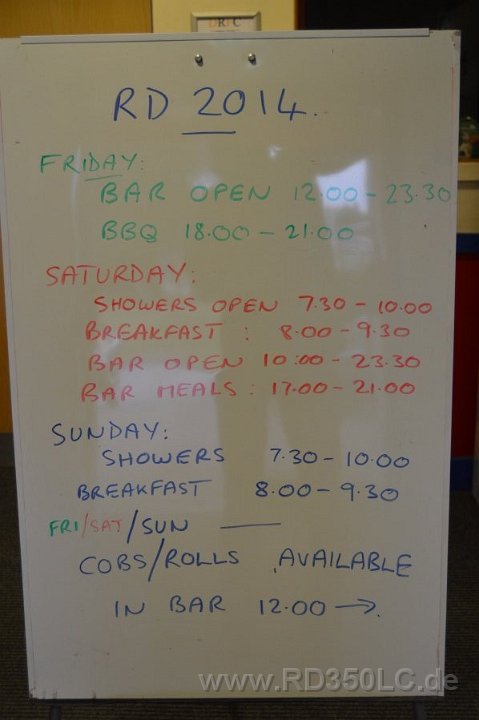 DRFC
RD 2014.
FRIDAY:
BAR OPEN 12.00 - 23.30
BBQ 18.00 - 21.00
SATURDAY:
SHOWERS OPEN 7.30 - 10.00
BREAKFAST : 8.00 - 9.30
BAR OPEN 10:00 - 23.30
BAR MEALS : 17.00 - 21.00
SUNDAY:
SHOWERS 7.30 - 10.00
BREAKFAST 8.00 - 9.30
FRI/SAT/SUN —
COBS/ROLLS AVAILABLE
IN BAR 12.00 →.
www.RD350LC.de